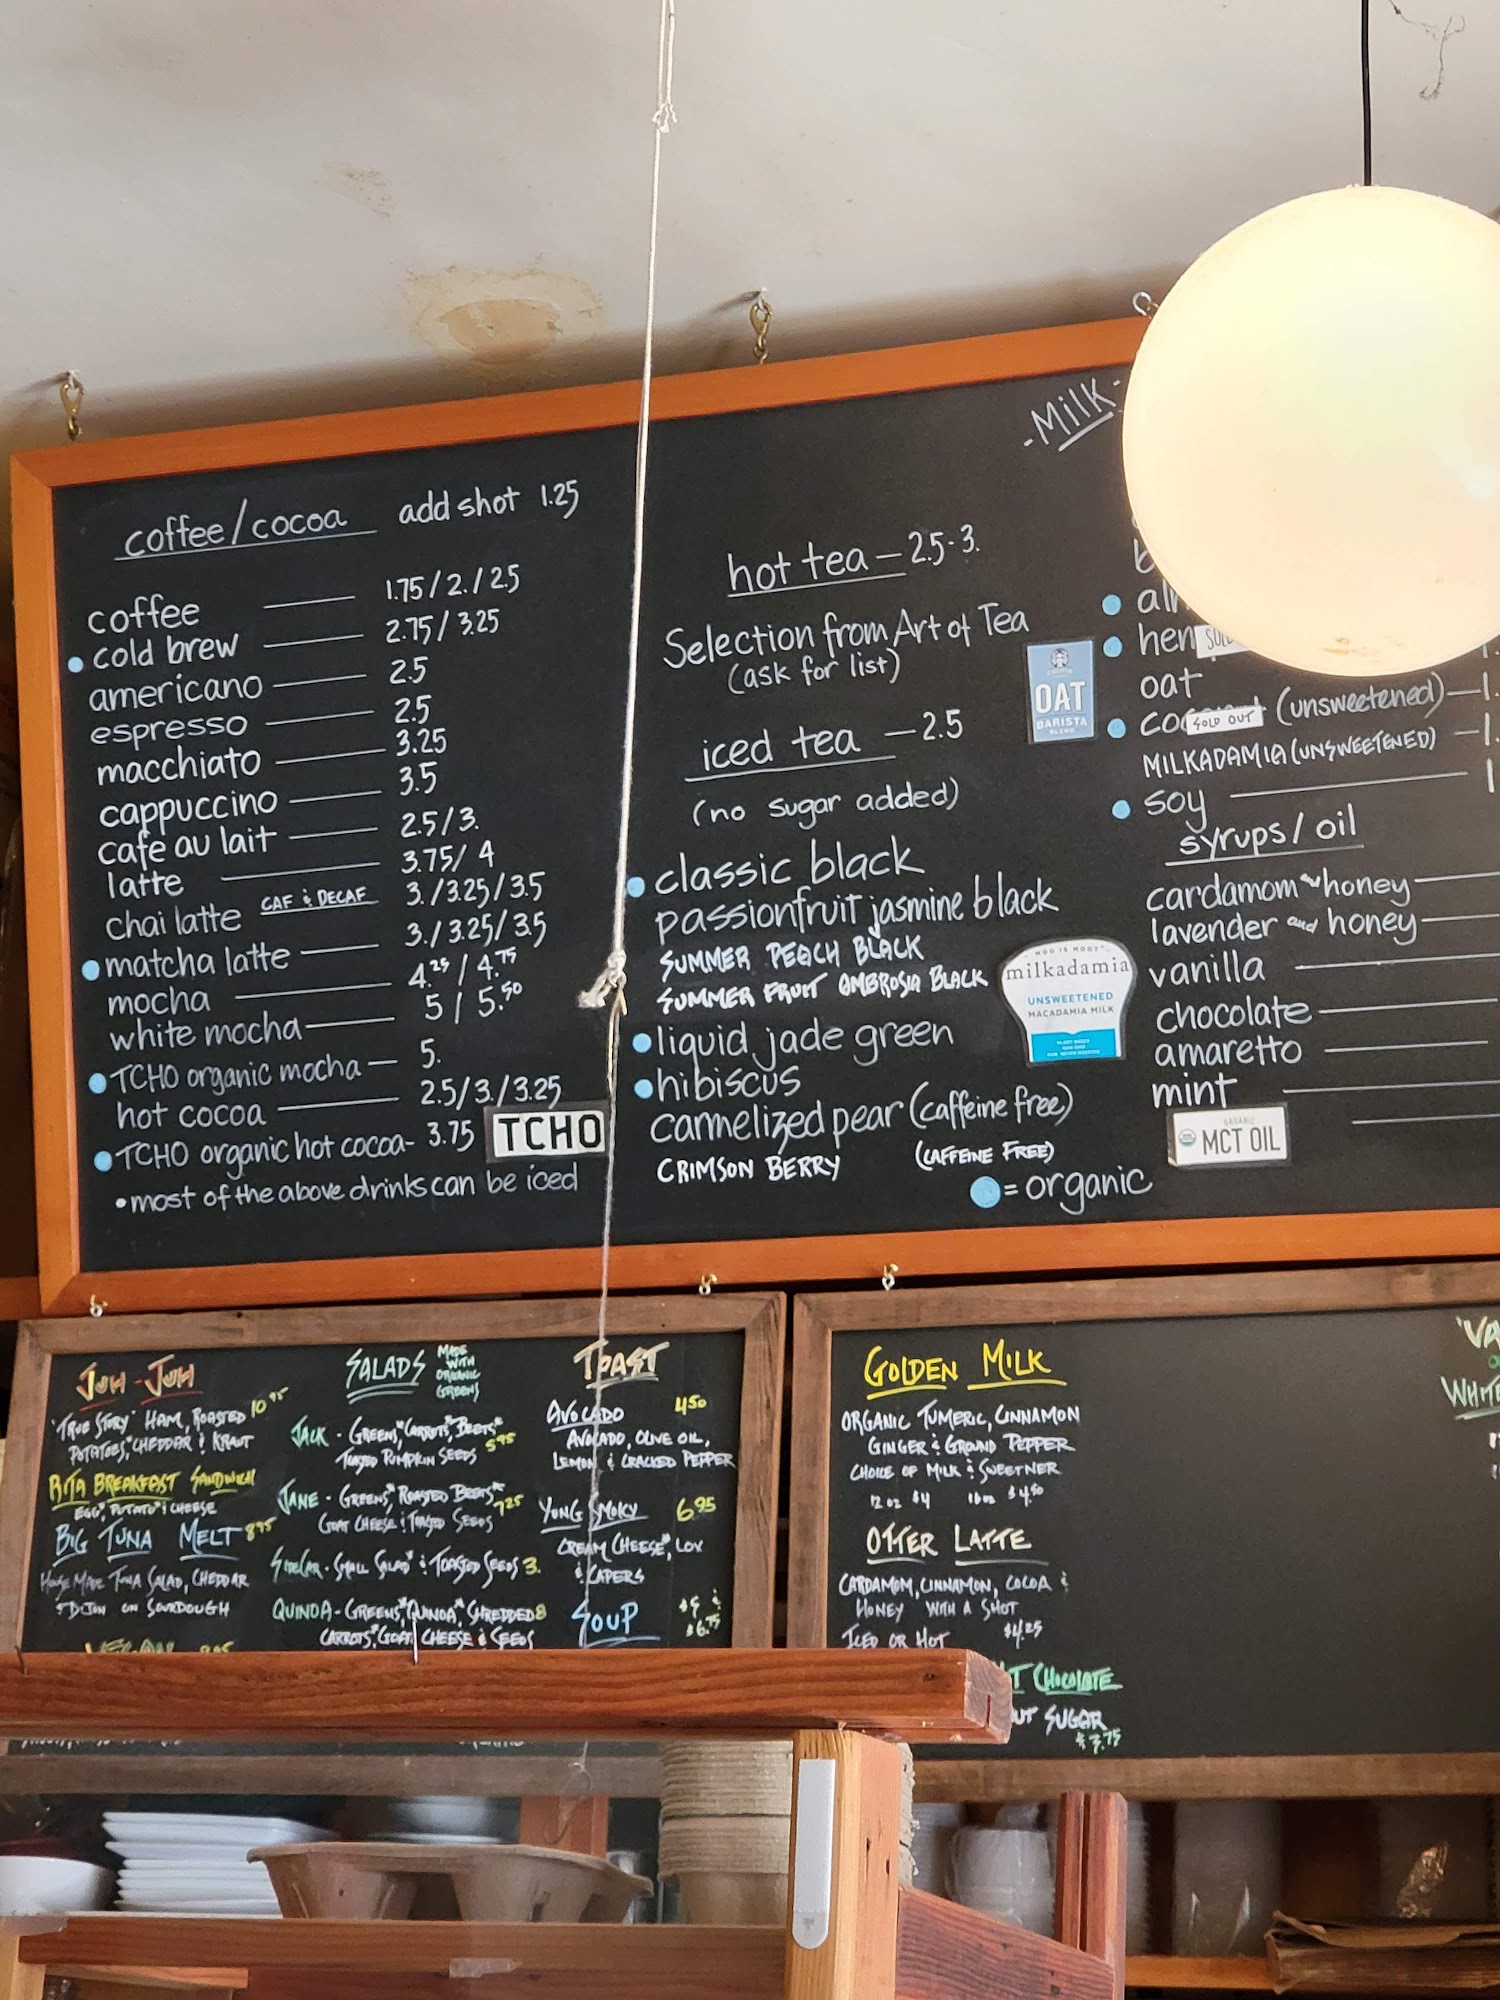 coffee/cocoa add shot 1.25
coffee 1.75/2./2.5
cold brew 2.75/3.25
americano 2.5
espresso 2.5
macchiato 3.25
cappuccino 3.5
cafe au lait 2.5/3.
latte 3.75/4
chai latte CAF & DECAF 3./3.25/3.5
matcha latte 3./3.25/3.5
mocha 4.25/4.75
white mocha 5/5.50
TCHO organic mocha 5.
hot cocoa 2.5/3./3.25
TCHO organic hot cocoa- 3.75
TCHO
•most of the above drinks can be iced
hot tea — 2.5-3.
Selection from Art of Tea
(ask for list)
iced tea — 2.5
(no sugar added)
classic black
passionfruit jasmine black
SUMMER PEACH BLACK
SUMMER FRUIT AMBROSIA BLACK
liquid jade green
hibiscus
carmelized pear (caffeine free)
CRIMSON BERRY (CAFFEINE FREE)
= organic
-MILK-
OAT
BARISTA
BLEND
oat
SOLD OUT (unsweetened) — 1.
MILKADAMIA (UNSWEETENED) — 1.
soy 1
syrups/oil
cardamom honey
lavender and honey
vanilla
chocolate
amaretto
mint
ORGANIC
MCT OIL
MOO IS MOOT
milkadamia
UNSWEETENED
MACADAMIA MILK
JUH-JUH
"TRUE STORY" HAM, ROASTED 10.95
POTATOES* CHEDDAR & KRAUT
PITA BREAKFAST SANDWICH
EGG, POTATO* & CHEESE
BIG TUNA MELT 8.95
HOUSE MADE TUNA SALAD, CHEDDAR
& DIJON ON SOURDOUGH
VEGAN
SALADS MADE WITH ORGANIC GREENS
JACK - GREENS* CARROTS* BEETS*
TOASTED PUMPKIN SEEDS 5.95
JANE - GREENS* ROASTED BEETS*
GOAT CHEESE & TOASTED SEEDS 7.25
SIDECAR - SMALL SALAD* & TOASTED SEEDS 3.
QUINOA - GREENS* QUINOA* SHREDDED 8
CARROTS* GOAT CHEESE & SEEDS
TOAST
AVOCADO 4.50
AVOCADO, OLIVE OIL,
LEMON & CRACKED PEPPER
YUNG SMOKY 6.95
CREAM CHEESE*, LOX
& CAPERS
SOUP $5 & $6.75
GOLDEN MILK
ORGANIC TUMERIC, CINNAMON
GINGER & GROUND PEPPER
CHOICE OF MILK & SWEETNER
12 oz $4 16 oz $4.50
OTTER LATTE
CARDAMOM, CINNAMON, COCOA &
HONEY WITH A SHOT
ICED OR HOT $4.25
CHOCOLATE
SUGAR
$3.75